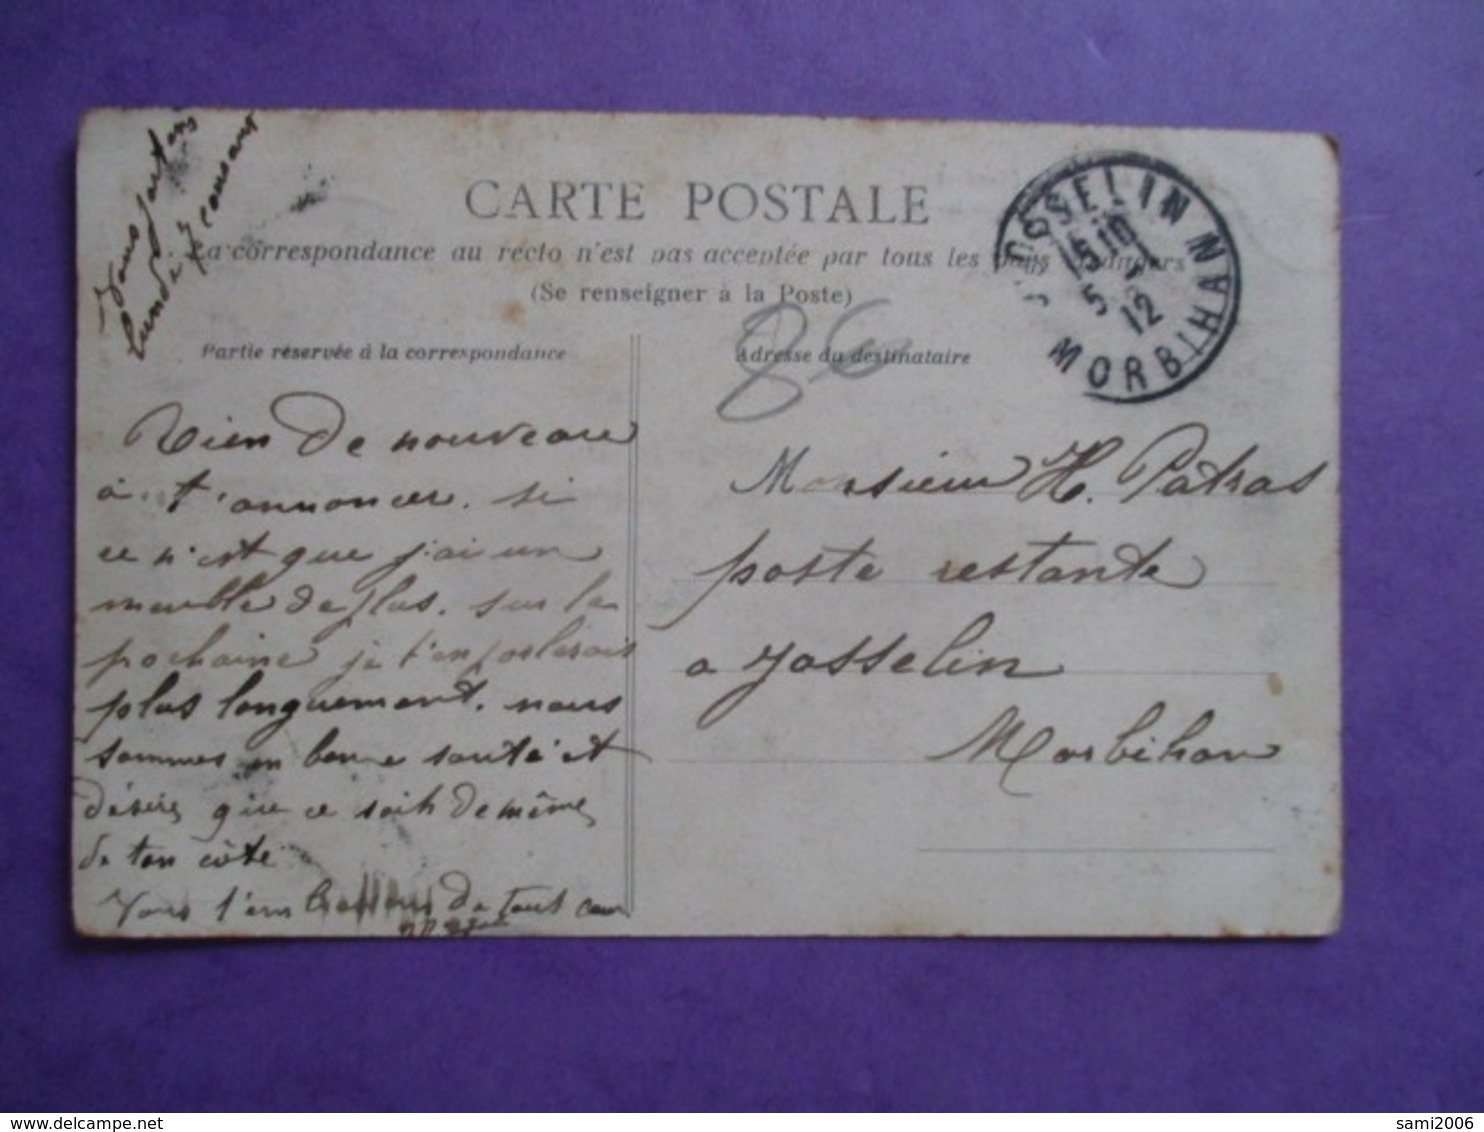 Nous partons
lundi
CARTE POSTALE
La correspondance au recto n'est pas acceptée par tous les pays étrangers
(Se renseigner à la Poste)
Partie réservée à la correspondance
Adresse du destinataire
86
JOSSELIN
15
5
12
MORBIHAN
Rien de nouveau
à t'annoncer. si
ce n'est que j'ai un
meuble de plus. sur la
prochaine je t'en parlerais
plus longuement. nous
sommes en bonne santé et
désire que ce soit de même
de ton côté
Nous t'embrassons de tout cœur
Monsieur H. Patras
poste restante
a Josselin
Morbihan
sami2006